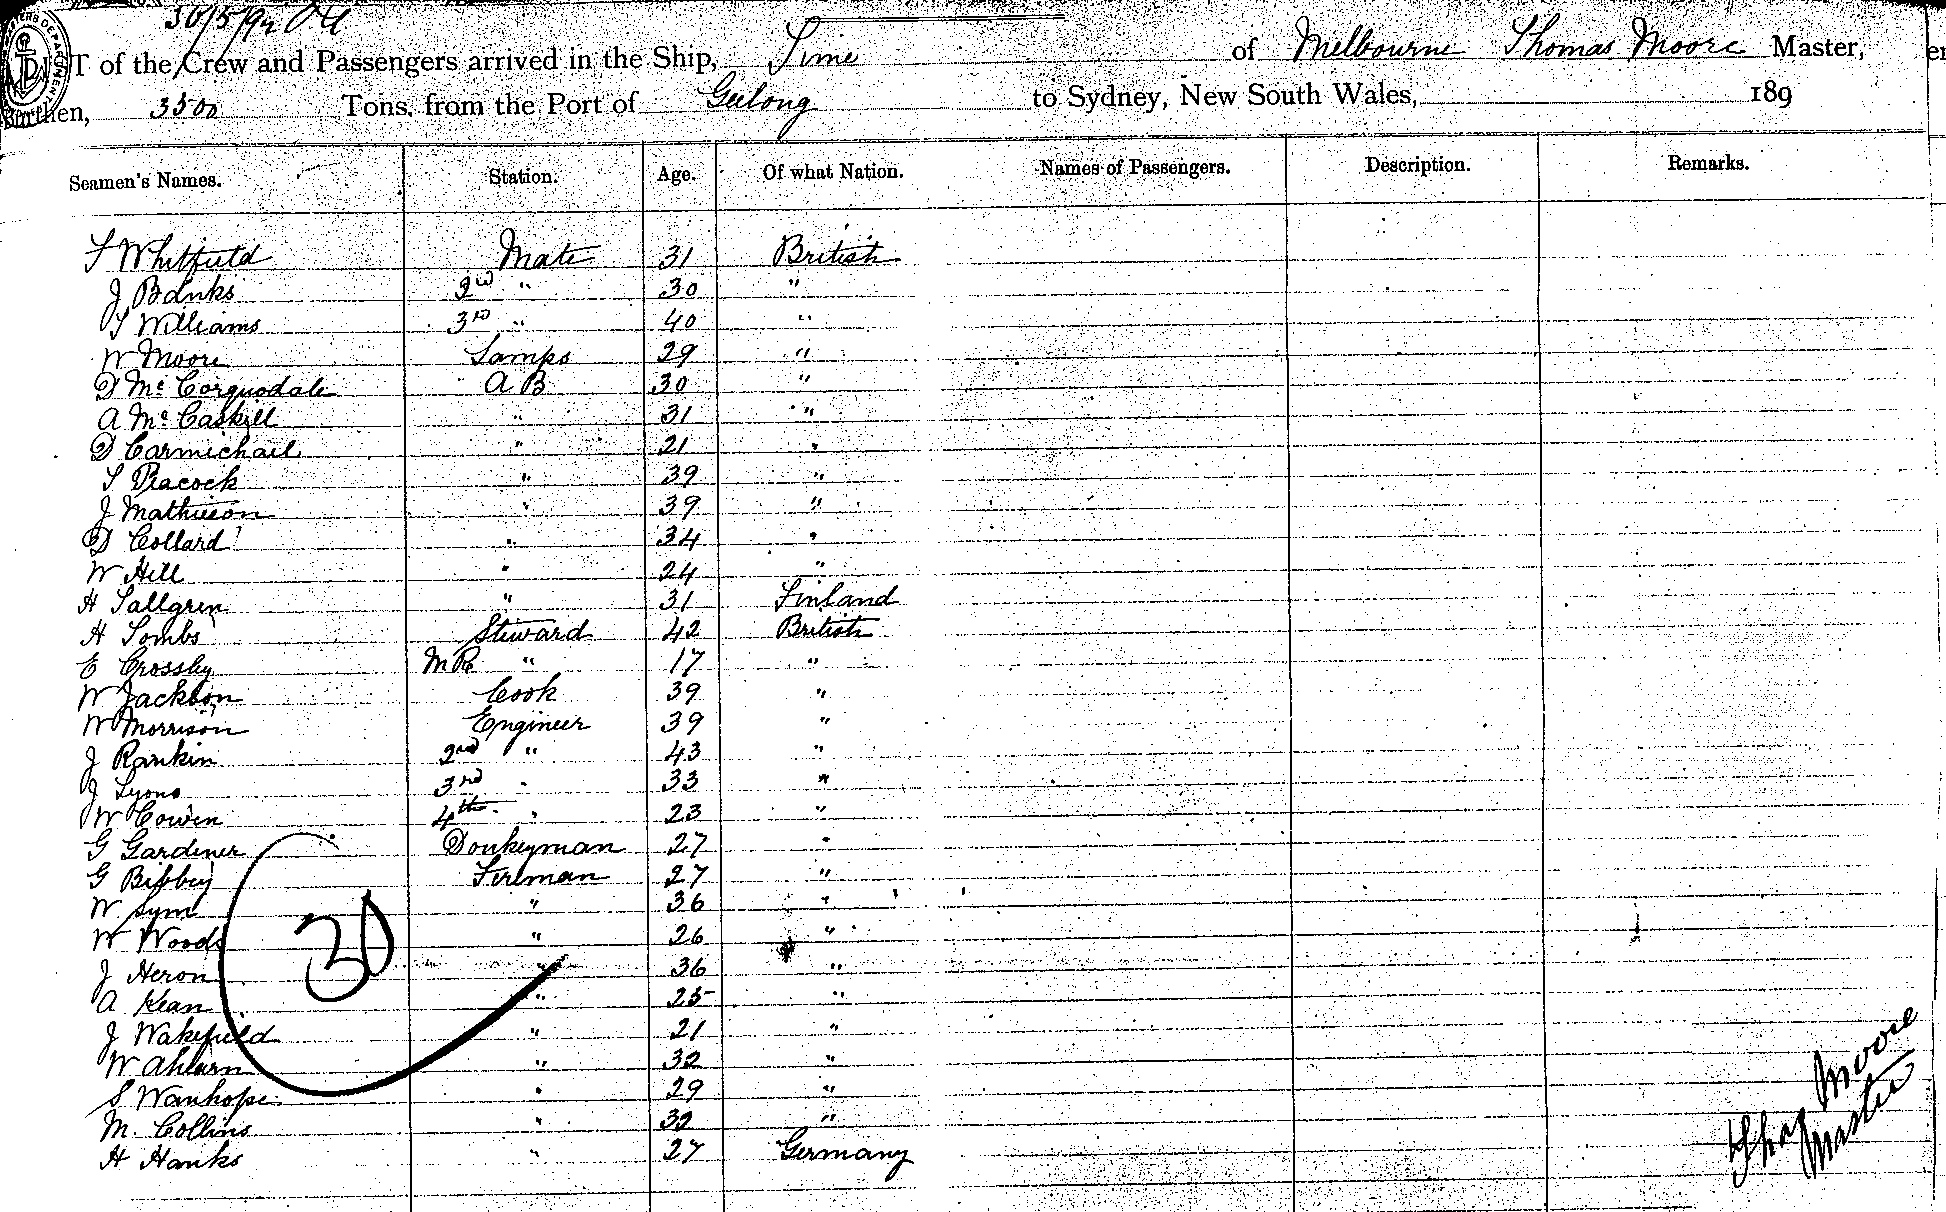 30/5/92
T of the Crew and Passengers arrived in the Ship, Time of Melbourne Thomas Moore Master,
Burthen, 3500 Tons, from the Port of Geelong to Sydney, New South Wales, 189
Seamen's Names. Station. Age. Of what Nation. Names of Passengers. Description. Remarks.
T Whitfield Mate 31 British
J Banks 2nd " 30 "
T Williams 3rd " 40 "
W Moore Lamps 29 "
D Mc Corquodale A B 30 "
A Mc Caskill " 31 "
D Carmichail " 21 "
T Peacock " 39 "
J Mathieson " 39 "
D Collard " 34 "
W Hill " 24 "
H Sallgren " 31 Finland
H Tombs Steward 42 British
E Crossby M R " 17 "
W Jackson Cook 39 "
W Morrison Engineer 39 "
J Rankin 2nd " 43 "
J Lyons 3rd " 33 "
W Cowen 4th " 23 "
G Gardiner Donkeyman 27 "
G Bibbey Fireman 27 "
W Sym " 36 "
W Woods " 26 "
30
J Heron " 36 "
A Kean " 25 "
J Wakefield " 21 "
W Ahearn " 32 "
S Wanhope " 29 "
M. Collins " 32 "
H Hanks " 27 Germany
Thos Moore
Master